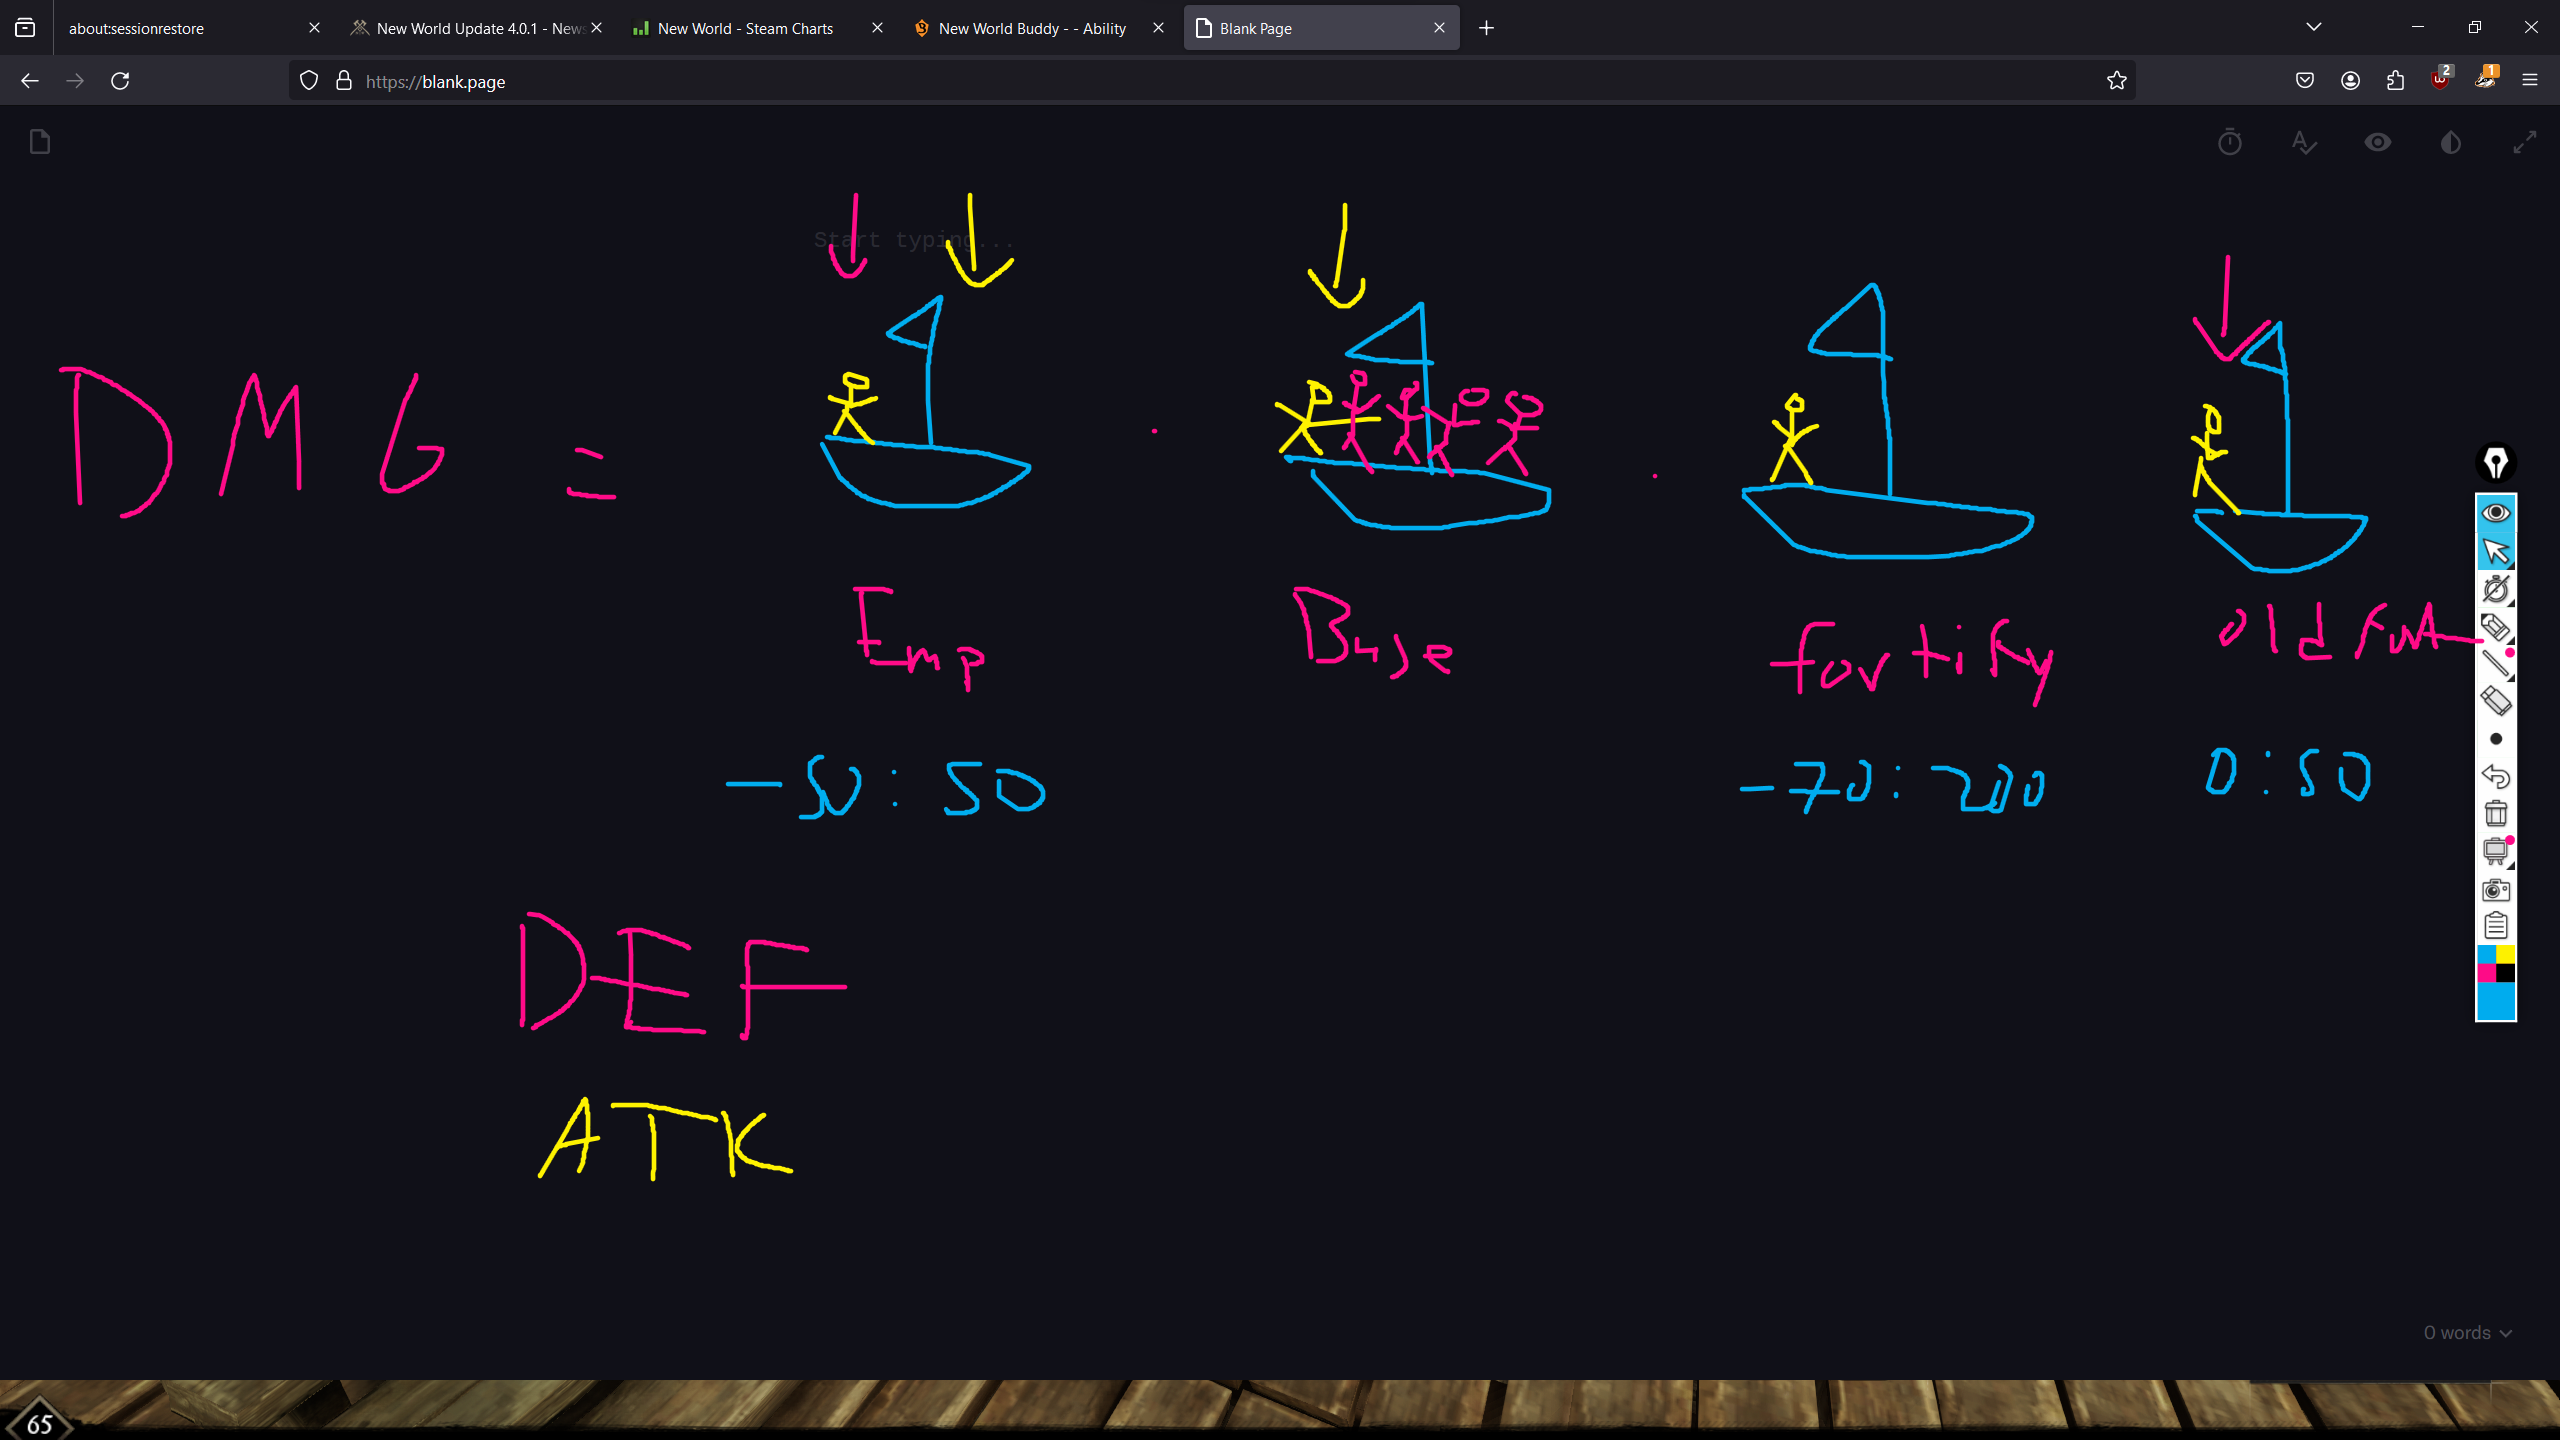 about:sessionrestore
New World Update 4.0.1 - News
New World - Steam Charts
New World Buddy - - Ability
Blank Page
https://blank.page
2
1
Start typing...
DMG =
Emp
Base
fortify
old
-50:50
-70:200
0:50
DEF
ATK
0 words
65